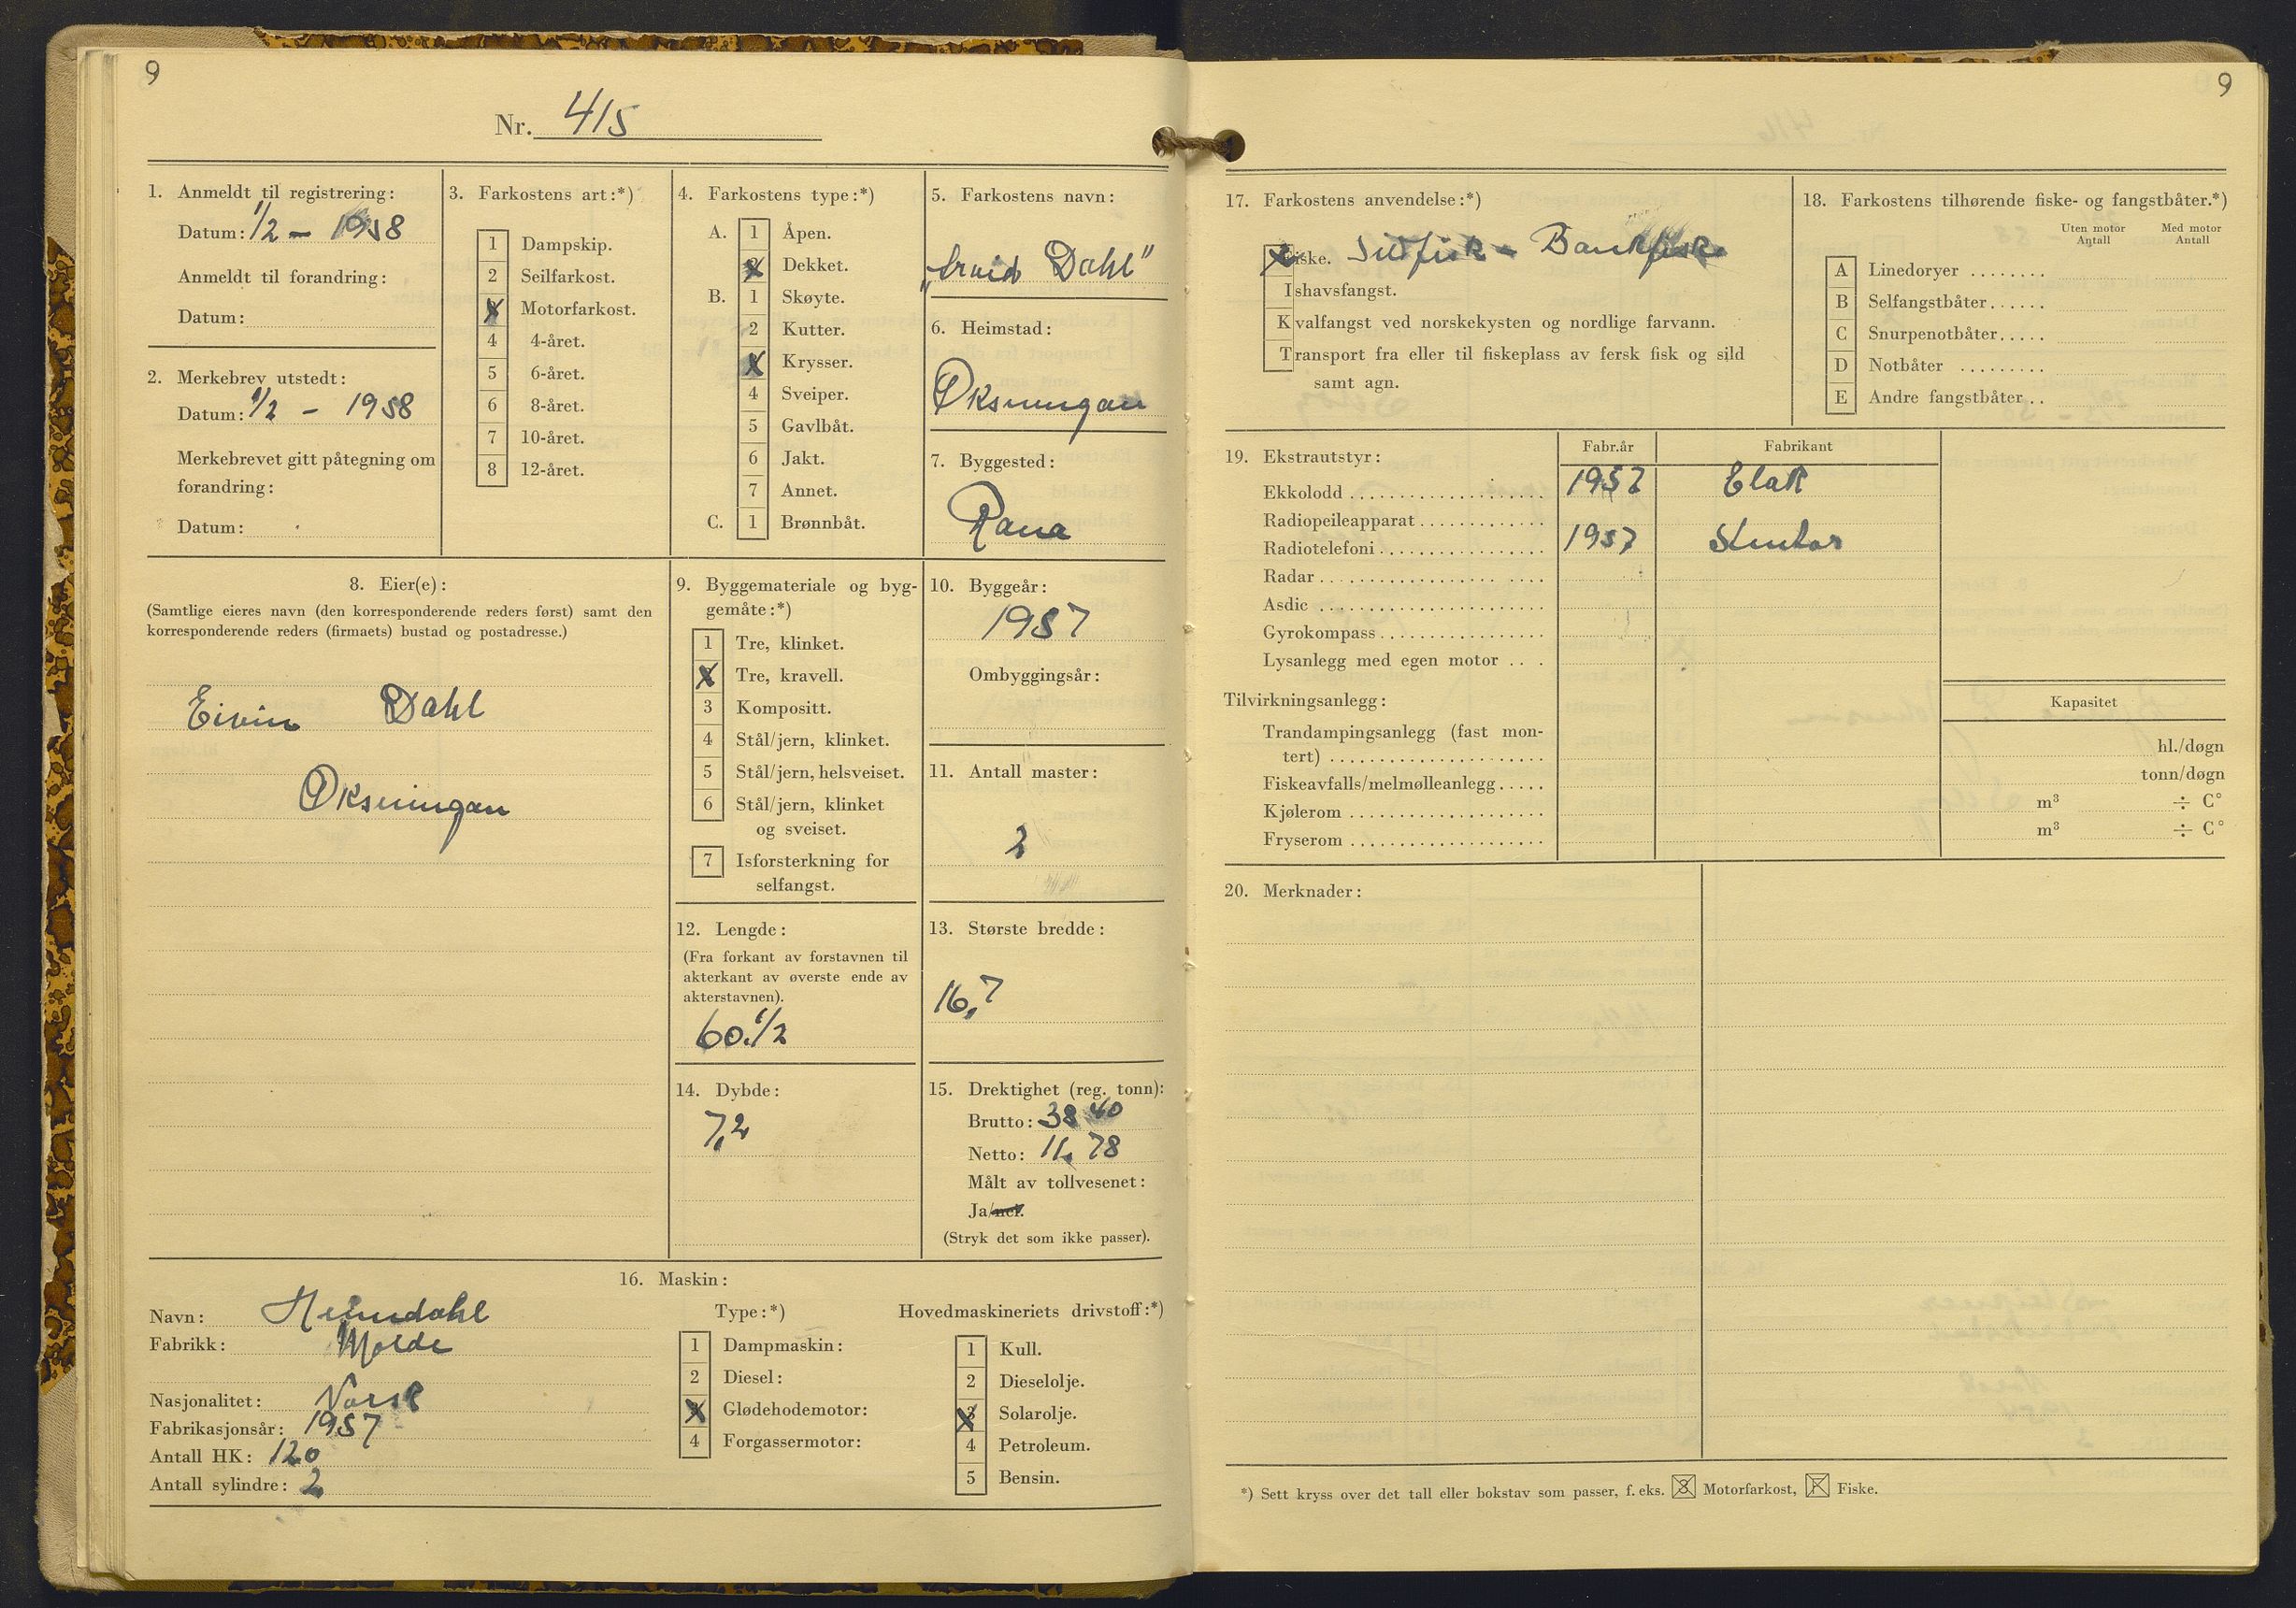 9
Nr. 415
1. Anmeldt til registrering:
Datum: 1/2 - 1958
Anmeldt til forandring:
Datum:
2. Merkebrev utstedt:
Datum: 1/2 - 1958
Merkebrevet gitt påtegning om
forandring:
Datum:
3. Farkostens art:*)
1 Dampskip.
2 Seilfarkost.
X Motorfarkost.
4 4-året.
5 6-året.
6 8-året.
7 10-året.
8 12-året.
4. Farkostens type:*)
A. 1 Åpen.
X Dekket.
B. 1 Skøyte.
2 Kutter.
X Krysser.
4 Sveiper.
5 Gavlbåt.
6 Jakt.
7 Annet.
C. 1 Brønnbåt.
5. Farkostens navn:
Dahl"
6. Heimstad:
Øksningan
7. Byggested:
Rana
8. Eier(e):
(Samtlige eieres navn (den korresponderende reders først) samt den
korresponderende reders (firmaets) bustad og postadresse.)
Eivin Dahl
Øksningan
9. Byggemateriale og byg-
gemåte:*)
1 Tre, klinket.
X Tre, kravell.
3 Kompositt.
4 Stål/jern, klinket.
5 Stål/jern, helsveiset.
6 Stål/jern, klinket
og sveiset.
7 Isforsterkning for
selfangst.
10. Byggeår:
1957
Ombyggingsår:
11. Antall master:
2
12. Lengde:
(Fra forkant av forstavnen til
akterkant av øverste ende av
akterstavnen).
60.1/2
13. Største bredde:
16,7
14. Dybde:
7,2
15. Drektighet (reg. tonn):
Brutto: 38 40
Netto: 11,78
Målt av tollvesenet:
Ja/nei.
(Stryk det som ikke passer).
16. Maskin:
Navn: Heimdahl
Fabrikk: Molde
Nasjonalitet: Norsk
Fabrikasjonsår: 1957
Antall HK: 120
Antall sylindre: 2
Type:*)
1 Dampmaskin:
2 Diesel:
X Glødehodemotor:
4 Forgassermotor:
Hovedmaskineriets drivstoff:*)
1 Kull.
2 Dieselolje.
3 Solarolje.
4 Petroleum.
5 Bensin.
9
17. Farkostens anvendelse:*)
Fiske. Sildfiske - Bankfiske
Ishavsfangst.
Kvalfangst ved norskekysten og nordlige farvann.
Transport fra eller til fiskeplass av fersk fisk og sild
samt agn.
18. Farkostens tilhørende fiske- og fangstbåter.*)
Uten motor Antall Med motor Antall
A Linedoryer ........
B Selfangstbåter......
C Snurpenotbåter.....
D Notbåter .........
E Andre fangstbåter ..
19. Ekstrautstyr: Fabr.år Fabrikant
Ekkolodd 1957 Elak
Radiopeileapparat
Radiotelefoni 1957 Stentor
Radar
Asdic
Gyrokompass
Lysanlegg med egen motor
Tilvirkningsanlegg: Kapasitet
Trandampingsanlegg (fast mon-
tert) hl./døgn
Fiskeavfalls/melmølleanlegg..... tonn/døgn
Kjølerom m³ ÷ C°
Fryserom m³ ÷ C°
20. Merknader:
*) Sett kryss over det tall eller bokstav som passer, f. eks. 3 Motorfarkost, F Fiske.